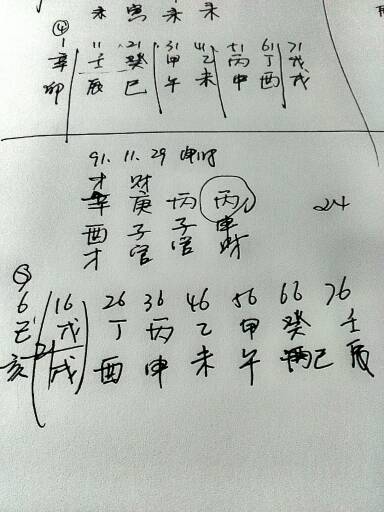 未 寅 未 未
④
1 11 21 31 41 51 61 71
辛 壬 癸 甲 乙 丙 丁 戊
卯 辰 巳 午 未 申 酉 戌
91. 11. 29 申时
才 财
辛 庚 丙 丙
24
酉 子 子 申
才 官 官 财
⑤
6 16 26 36 46 56 66 76
己 戊 丁 丙 乙 甲 癸 壬
亥 戌 酉 申 未 午 巳 辰